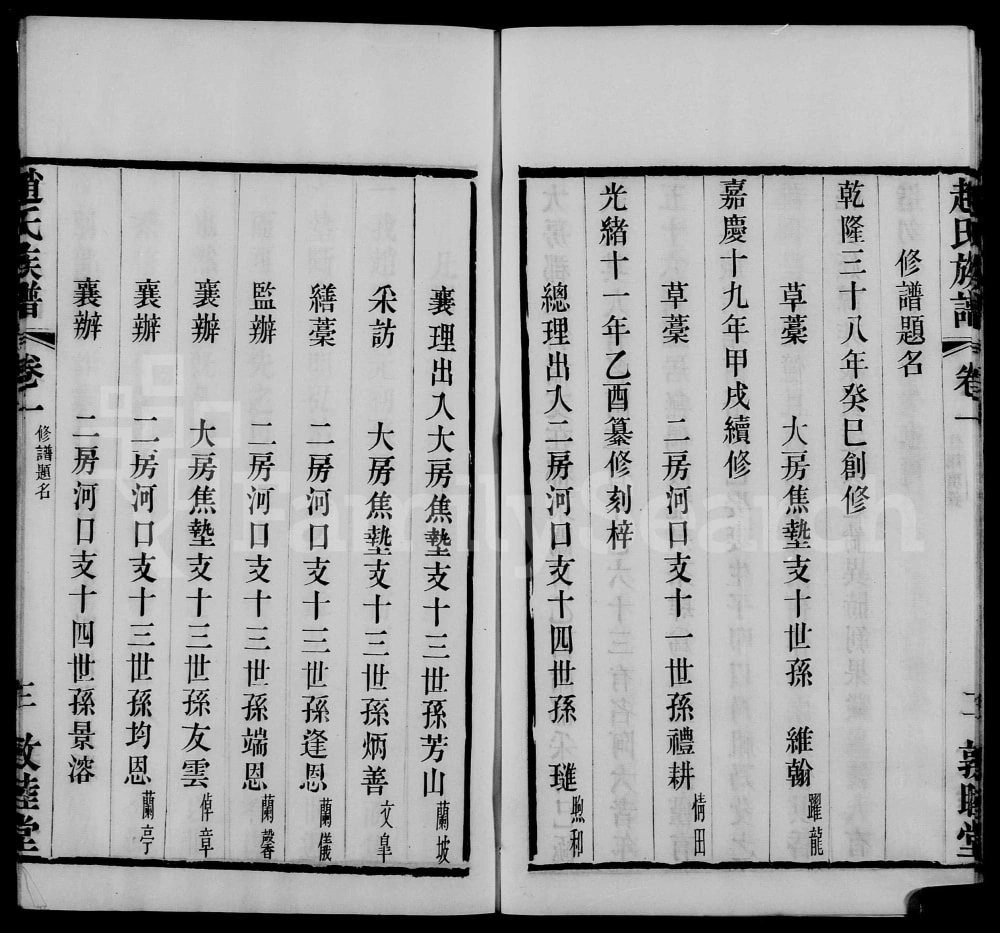 趙氏族譜 卷一 二 敦睦堂
修譜題名
乾隆三十八年癸巳創修
草藁 大房焦墊支十世孫 維翰 躍龍
嘉慶十九年甲戌續修
草藁 二房河口支十一世孫禮耕 情田
光緒十一年乙酉纂修刻梓
總理出入二房河口支十四世孫 璡 煦和
襄理出入大房焦墊支十三世孫芳山 蘭坡
采訪 大房焦墊支十三世孫炳善 文皇
繕藁 二房河口支十三世孫逢恩 蘭儀
監辦 二房河口支十三世孫端恩 蘭馨
襄辦 大房焦墊支十三世孫友雲 倬章
襄辦 二房河口支十三世孫均恩 蘭亭
襄辦 二房河口支十四世孫景溶
趙氏族譜 卷一 修譜題名 三 敦睦堂
FamilySearch